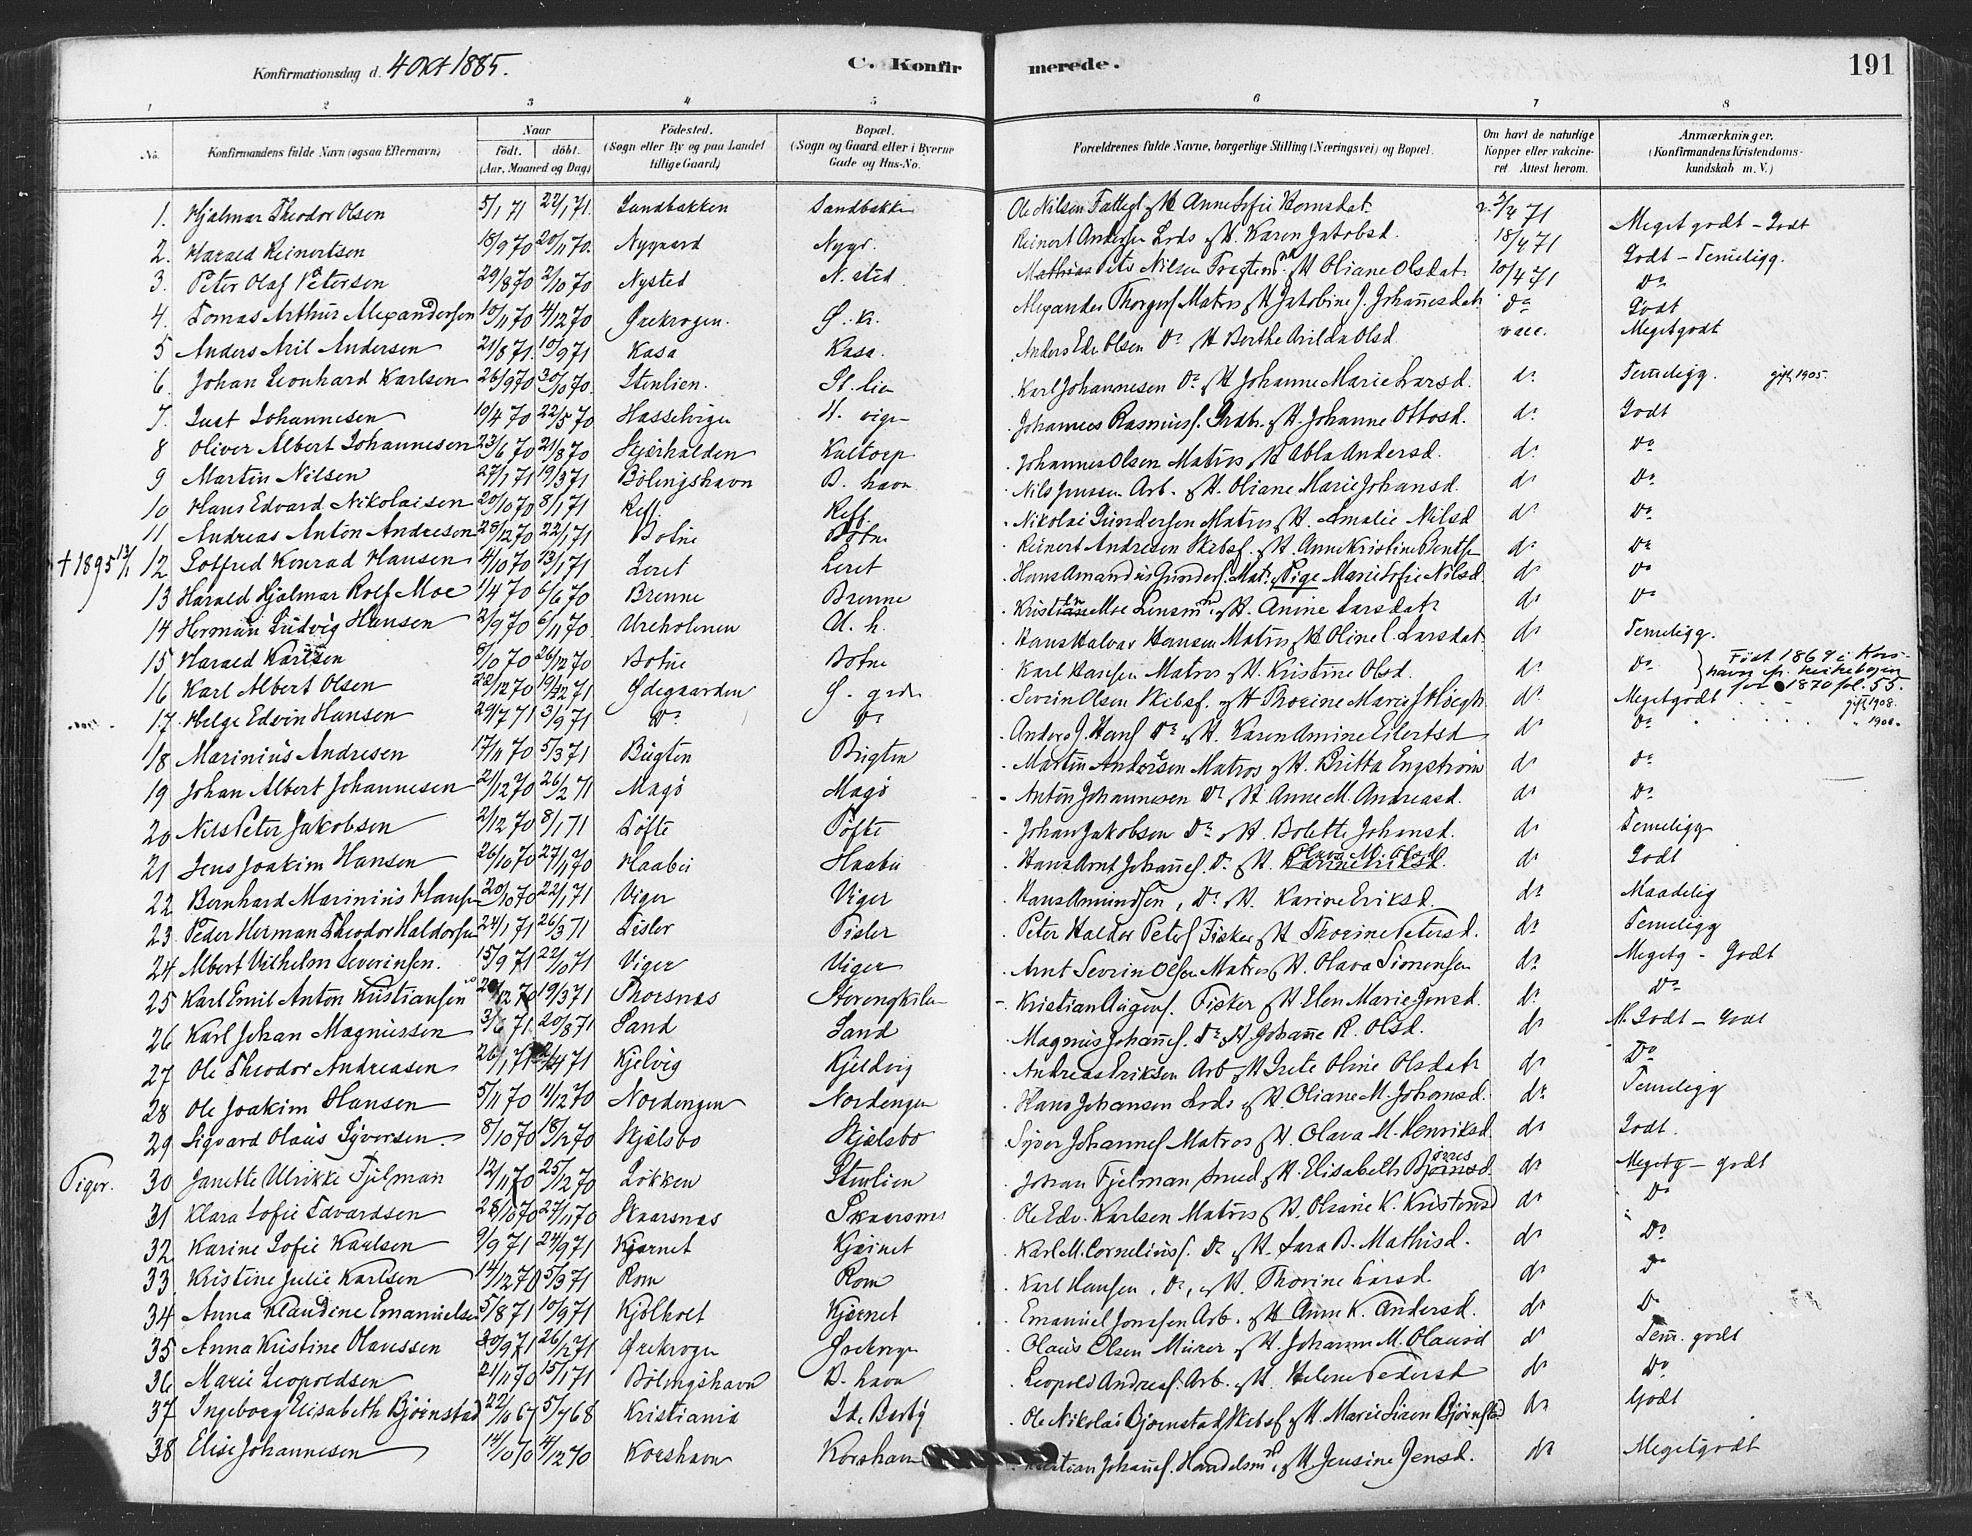 Konfirmationsdag d. 4 Okt 1885. C. Konfirmerede. 191
1 2 3 4 5 6 7 8
No. Konfirmandens fulde Navn (ogsaa Efternavn). Naar født. døbt. (Aar, Maaned og Dag) Fødested. (Sogn eller By og paa Landet tillige Gaard) Bopæl. (Sogn og Gaard eller i Byerne Gade og Hus-No. Forældrenes fulde Navne, borgerlige Stilling (Næringsvei) og Bopæl. Om havt de naturlige Kopper eller vakcineret Attest herom. Anmærkninger. (Konfirmandens Kristendomskundskab m. V.)
1. Hjalmar Theodor Olsen 5/1 71 22/1 71. Sandbakken Sandbakken Ole Nilsen Anne Sofie 71 Meget godt - Godt
2. Harald Reinertsen 18/9 70 20/11 70. Nygaard Nygr. Reinert Andersen Lods og H. Karen Jakobsd. 18/4 71 Godt - Temeligg.
3. Peter Olaf Petersen 29/8 70 2/10 70 Nysted N. sted Nilsen og H. Oliane Olsdatr 10/4 71 Do
4. Tomas Arthur Alexandersen 10/11 70 4/12 70 Ørekrogen. Ø. K. Alexander Thorgers. Matros og H. Jakobine J. Johannesdatr do Godt
5 Anders Aril Andersen 21/8 71. 10/9 71 Kasa Kasa. Anders Edv. Olsen Do og H. Berthe Arilda Olsd. vacc. Meget godt
6. Johan Leonhard Karlsen 26/9 70 30/10 70. Stenlien. St. lien Karl Johannesen Do og H. Johanne Marie Larsd. do Temeligg. gift 1905.
7. Just Johannesen 10/4 70 22/5 70 Hasselvigen H. vigen Johannes Rasmuss. Grdbr. og H. Johanne Ottosd. do Godt
8 Oliver Albert Johannesen 23/6 70 21/8 70 Skjærhalden Kaltorp Johannes Olsen Matros og H. Abla Andersd. do Do
9 Martin Nilsen 27/1 71 19/3 71 Bølingshavn B. havn Nils Jenssen Arb. og H. Oliane Marie Johansd. do Do
10 Hans Edvard Nikolaisen 20/10 70 8/1 71 Reff Reff Nikolai Gundersen Matros og H. Amalie Nilsd do Do
11 Andreas Anton Andresen 28/12 70 22/1 71 Botne Botne Reinert Andresen Skibsf. og H. Anne Kristine Bentsen do Do
† 1895 13/1 12 Gotfred Konrad Hansen 4/10 70 13/1 71 Leret Leret Hans Amandus Gunders. Mat. Pige Marie Sofie Nilsd. do Do
13 Harald Hjalmar Rolf Moe 1/4 70 6/6 70 Brenne Brenne Kristian Moe Lensmd og H. Anine Larsdatr do Do
14 Herman Ludvig Hansen 2/9 70 6/11 70. Ureholmen U. h. Hans Halvar Hansen Matros og H. Oline C. Larsdat do Temeligg.
15 Harald Karlsen /10 70 26/12 70 Botne Botne Karl Hansen Matros og H. Kristine Olsd. do Do Født 1869 i Korshavn se kirkebogen for 1870 fol. 55.
16 Karl Albert Olsen 22/12 70 19/ 71 Ødegaarden Ø. grdn Severin Olsen Skibsf. og H. Thorine Marie do Meget godt gift 1908.
17. Helge Edvin Hansen 29/7 71 3/9 71 Do Do Anders J. Hans. Do og H. Karen Amine Eilertsd do Do 1908.
18 Marinius Andresen 17/11 70 5/3 71 Bugten Bugten Martin Andersen Matros og H. Britta Engstrøm do do
19 Johan Albert Johannesen 21/12 70 26/2 71 Magø Magø Anton Johannesen Do og H. Anne M. Andreasd. do Do
20 Nils Peter Jakobsen 2/12 70 8/1 71 Tofte Tofte Johan Jakobsen Do og H. Bolette Johansd. do Temeligg
21 Jens Joakim Hansen 26/10 70 27/11 70 Haabu Haabu Hans Arnt Johans. Do og H. Olava M. Olsd do Godt
22 Bernhard Marinius Hansen 20/10 70 22/1 71 Viger Viger Hans Amundsen, Do og H. Karine Eriksd. do Maadelig
23 Peder Herman Theodor Haldorsen 24/1 71 26/3 71 Tisler Tisler Peter Haldor Peters. Fisker og H. Thorine Petersd. do Temeligg
24 Albert Vilhelm Severinsen. 15/9 71 22/10 71 Viger Viger Arnt Severin Olsen Matros og H. Olava Simonsen do Megetg - Godt
25 Karl Emil Anton Kristiansen 2/12 70 19/3 71 Thorsnæs Storengkilen Kristian Aagens. Fisker og H. Elen Marie Jensd. do Do
26 Karl Johan Magnussen 3/6 71. 20/8 71 Sand Sand Magnus Johans. Do og H. Johanne R. Olsd. do M. Godt - Godt
27 Ole Theodor Andreasen 26/1 71 /4 71 Kjelvig Kjeldvig Andreas Eriksen Arb og H. Grete Oline Olsdatr do Do
28 Ole Joakim Hansen 5/11 70 4/12 70 Nordengen Nordengen Hans Johansen Lods og H. Oliane M. Johansd. do Temeligg
29 Sigvard Olaus Syversen 8/10 70 18/12 70 Skjelsbo Skjelsbo Syver Johannes. Matros og H. Olava M. Henriksd. do Godt.
Piger. 30 Janette Ulrikke Fjelman 12/11 70 25/12 70 Løkken Stenlien Johan Fjelman Smed og H. Elisabeth do Megetg - godt
31 Klara Sofie Edvardsen 28/10 70 27/11 70 Skaarsnæs Skaarsnes Ole Edv. Karlsen Matros og H. Olsane K. Kristensd do Do
32 Karine Sofie Karlsen 9/9 71 24/9 71 Kjærnet Kjærnet Karl M. Cornelius. Do og H. Sara B. Mathisd. do Do
33 Kristine Julie Karlsen 14/12 70 5/3 71 Rom Rom Karl Hansen, Do, og H. Thorine Larsd. do Do
34 Anna Klaudine Emanuelsen 5/8 71 10/9 71 Kjølholt Kjærnet Emanuel Jonssen Arb. og H. Anne K. Andersd. do Do
35 Anna Kristine Olaussen 30/9 71 26/12 71 Ørekrogen Ørekrogen Olaus Olsen Murer og H. Johanne M. Olausd do Tem. godt
36 Marie Leopoldsen 21/11 70 15/1 71 Bølingshavn B. havn Leopold Andreas. Arb. og H. Helene Pedersd do Do
37 Ingeborg Elisabeth Bjørnstad 22/10 67 5/7 68 Kristiania Ide Berby Ole Nikolai Bjørnstad Skibsf. og H. Marie Bjørnstad do Godt
38 Elise Johannesen 14/10 70 4/12 70 Korshavn Korshavn Johans. Handelsmd, og H. Jensine Jensd. do Meget godt